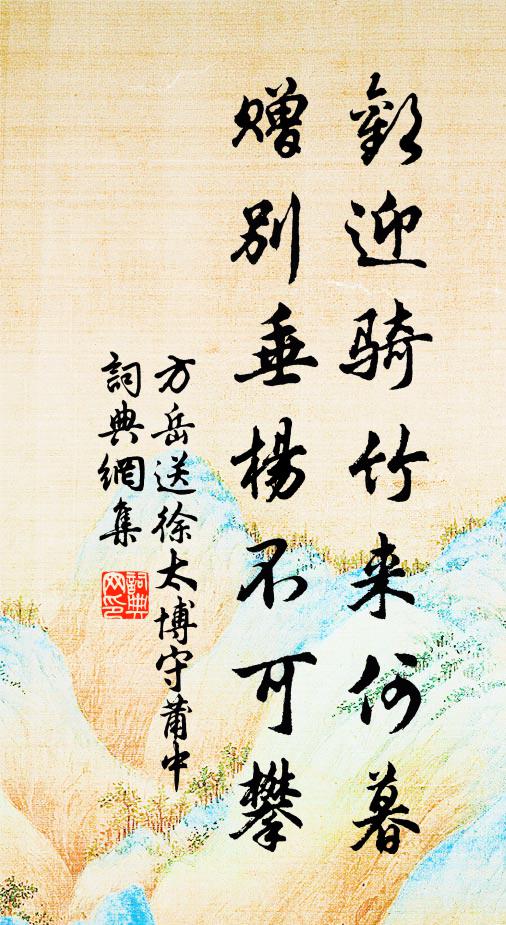 歡迎騎竹来何暮
贈别垂楊不可攀
方岳送徐太博守莆中
詞典網集
詞典
网印